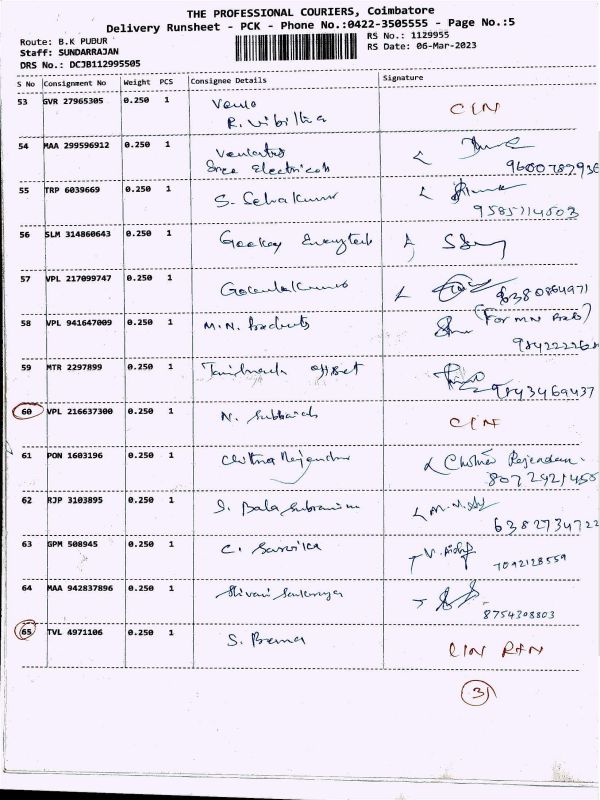 THE PROFESSIONAL COURIERS, Coimbatore
Delivery Runsheet - PCK - Phone No.:0422-3505555 - Page No.:5
Route: B.K PUDUR
RS No.: 1129955
Staff: SUNDARRAJAN
RS Date: 06-Mar-2023
DRS No.: DCJB112995505
S No Consignment No Weight PCS Consignee Details Signature
53 GVR 27965305 0.250 1
CIN
54 MAA 299596912 0.250 1
Sree Electricals
55 TRP 6039669 0.250 1 S. Selvakumar
9585114503
56 SLM 314860643 0.250 1
57 VPL 217099747 0.250 1 Gokulakannan
6380864971
58 VPL 941647009 0.250 1 M.N. Products
(For MN
59 MTR 2297899 0.250 1 Tamilnadu offset
9843469437
60 VPL 216637300 0.250 1 N. Subbaiah CIN
61 PON 1603196 0.250 1 Chitra Rajendran Chitra Rajendran.
62 RJP 3103895 0.250 1 S. Bala Subramanian
6382734722
63 GPM 508945 0.250 1 C.
7092128559
64 MAA 942837896 0.250 1
8754308803
65 TVL 4971106 0.250 1 S. Prema CIN
3